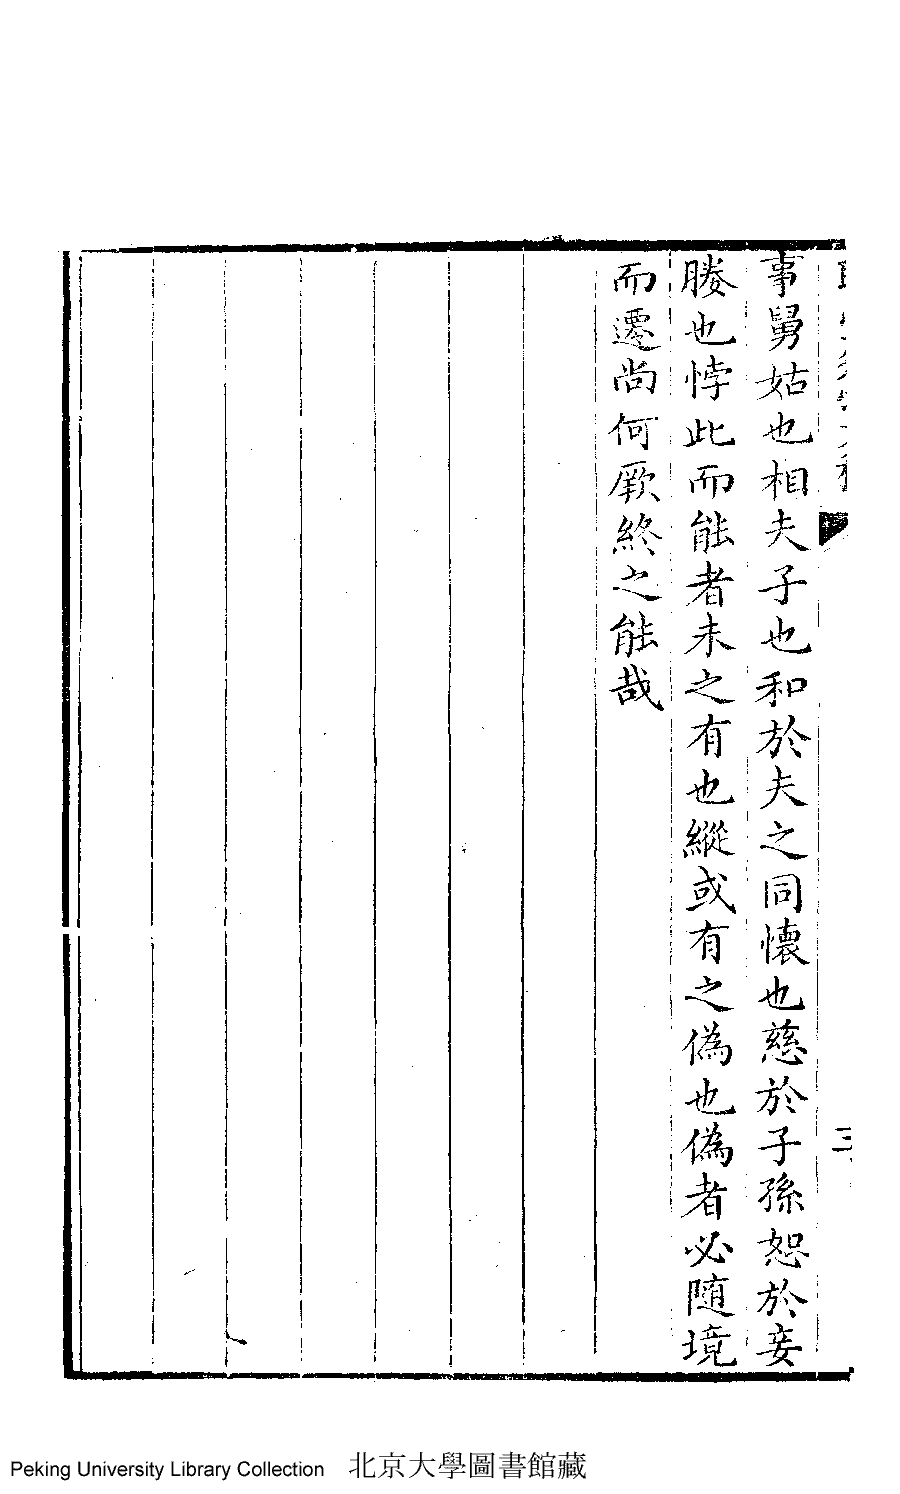 事舅姑也相夫子也和於夫之同懷也慈於子孫恕於妾
媵也悖此而能者未之有也縱或有之偽也偽者必隨境
而遷尚何厥終之能哉
三
Peking University Library Collection 北京大學圖書館藏